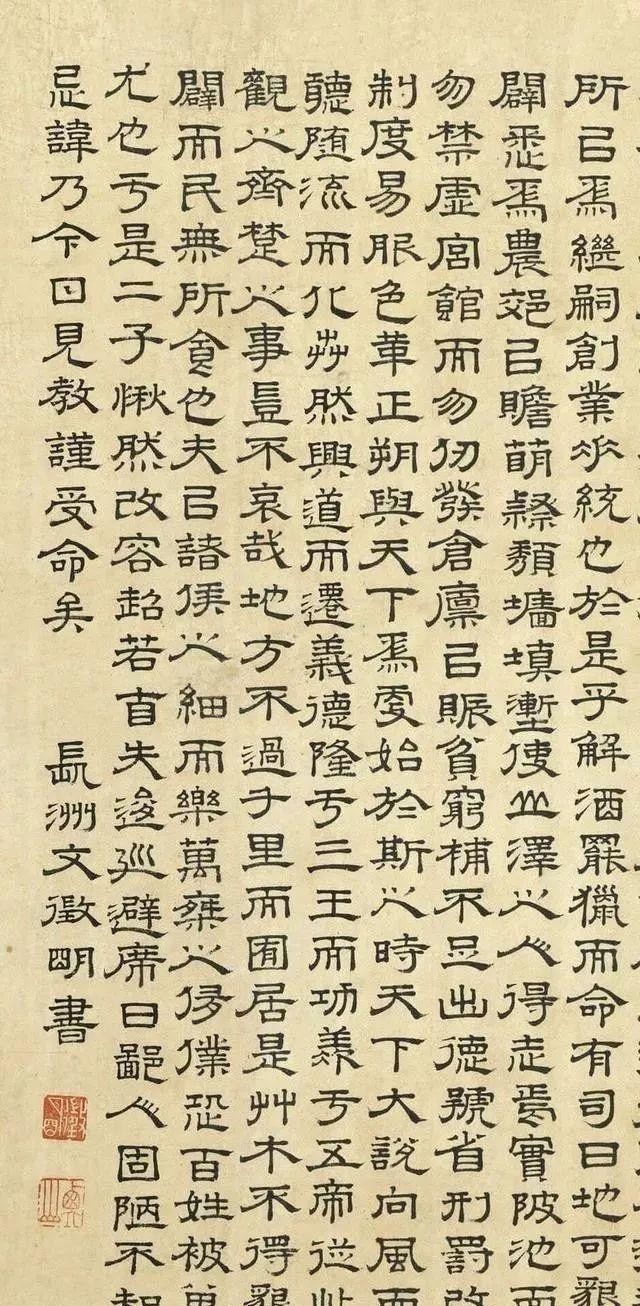 所以為繼嗣創業垂統也於是乎解酒罷獵而命有司曰地可墾
闢悉為農郊以贍萌隸頹墻填壍使山澤之人得志焉實陂池而
勿禁虛宮館而勿仞發倉廩以賑貧窮補不足出德號省刑罰改
制度易服色革正朔與天下為更始於斯之時天下大說向風而
聽隨流而化芔然興道而遷義德隆于三王而功羡于五帝從此
觀之齊楚之事豈不哀哉地方不過千里而囿居是艸木不得墾
闢而民無所食也夫以諸侯之細而樂萬乘之侈僕恐百姓被其
尤也于是二子愀然改容超若自失逡巡避席曰鄙人固陋不知
忌諱乃今日見教謹受命矣
長洲文徵明書